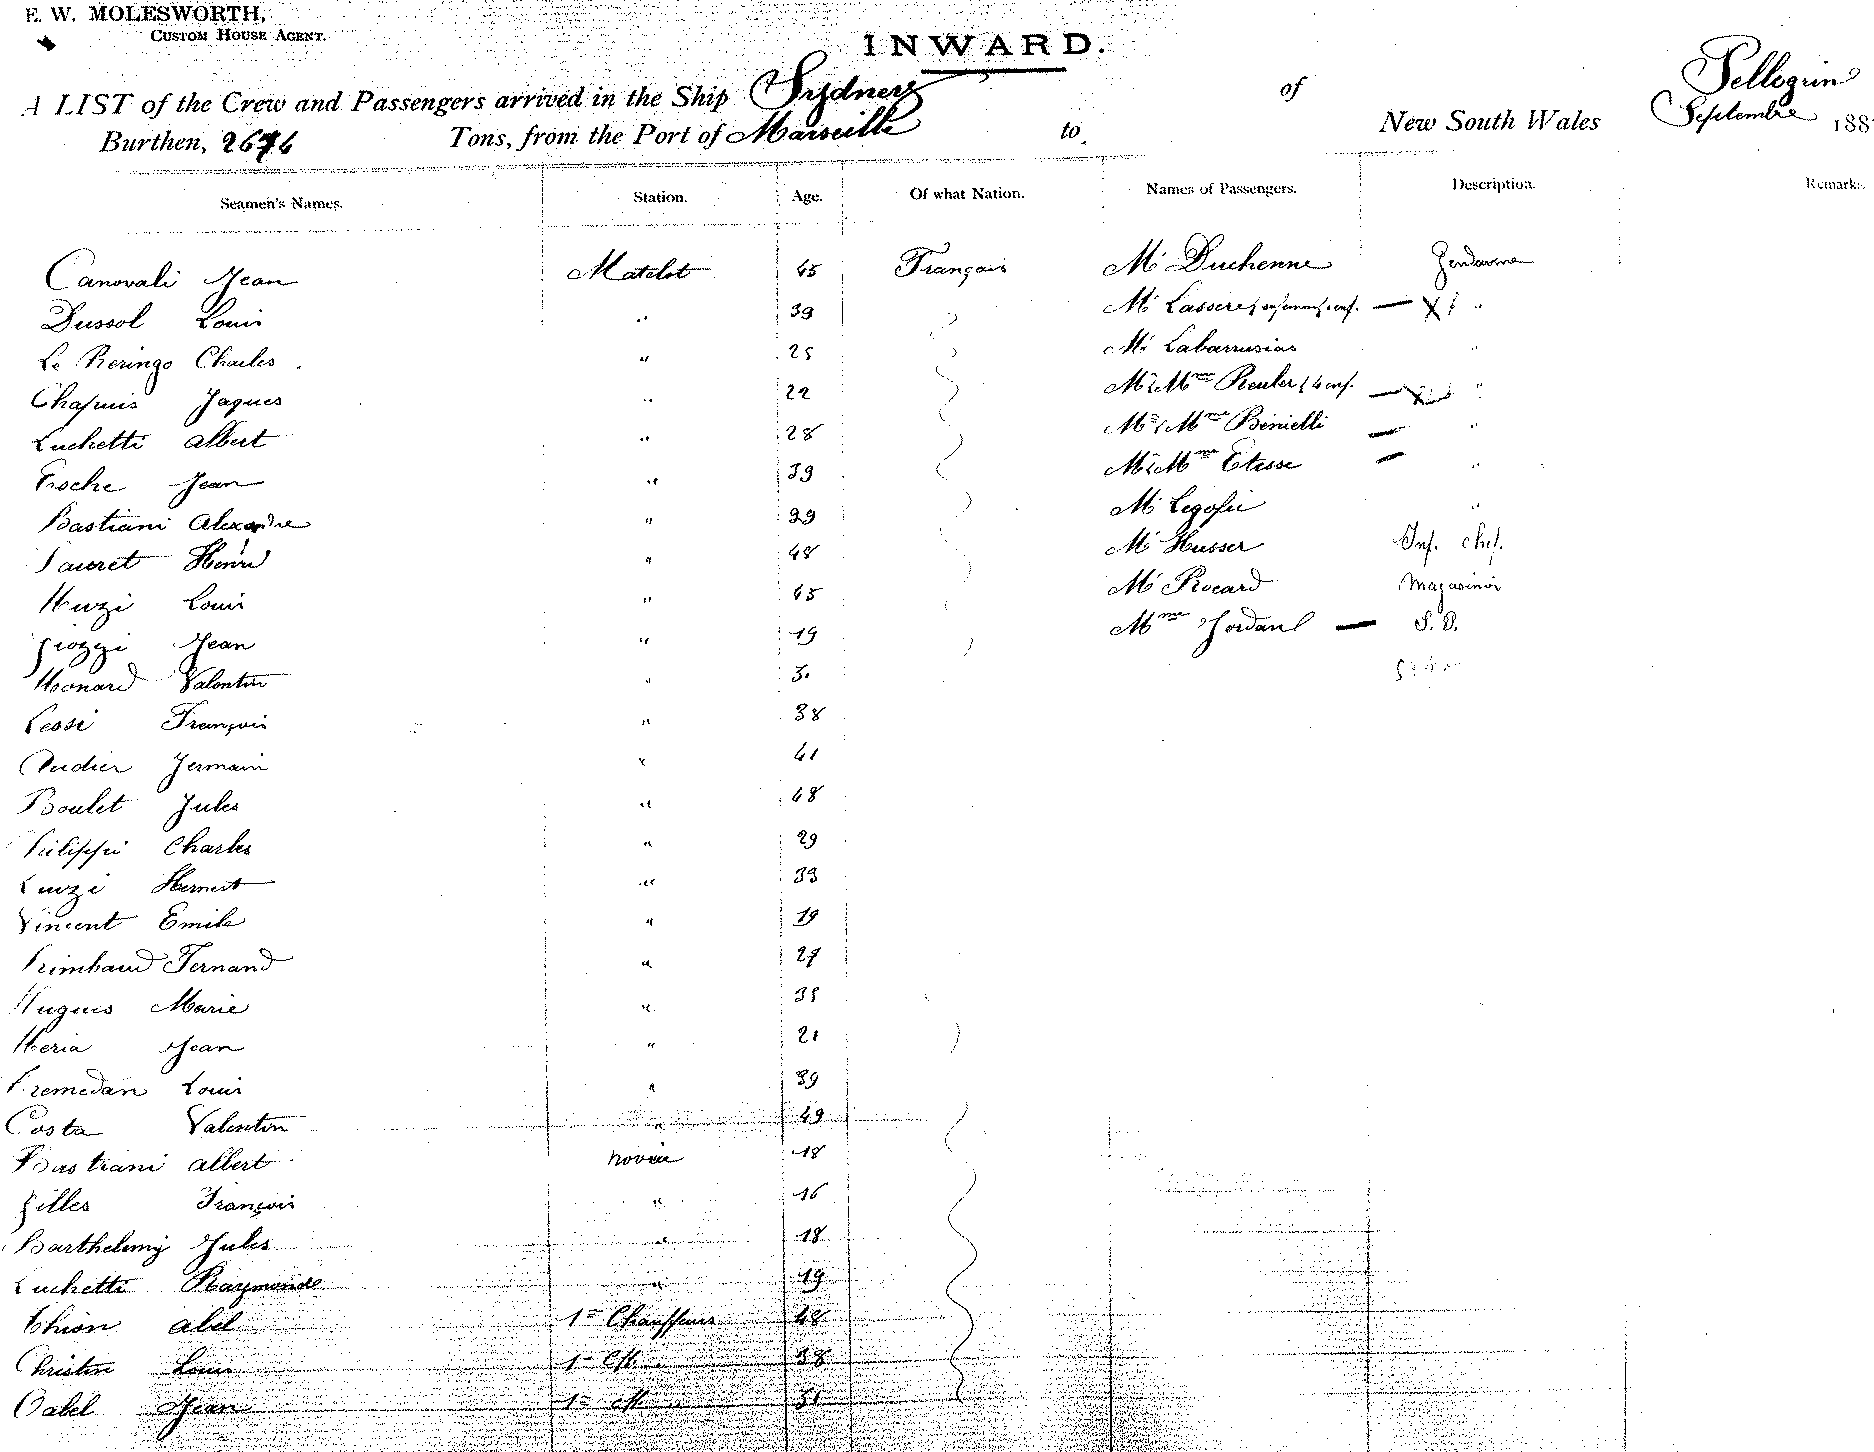 E. W. MOLESWORTH,
CUSTOM HOUSE AGENT.
INWARD.
A LIST of the Crew and Passengers arrived in the Ship Sydney of Pellegrin
Burthen, 2676 Tons, from the Port of Marseille to New South Wales Septembre 188
Seamen's Names. Station. Age. Of what Nation. Names of Passengers. Description. Remarks.
Canovali Jean Matelot 45 Français Mr Duchenne Gendarme
Dussol Louis " 39 Mr Lassere "
Le Reringo Charles " 25 Mr Labarrusias "
Chapuis Jaques " 22 Mr & Mme Reuler & 4 enf. "
Luchetti albert " 28 Mr & Mme Binielli "
Froche Jean " 39 Mr & Mme Etesse "
Bastiani Alexandre " 39 Mr Legofic "
Sauret Henri " 48 Mr Husser Inf. chef.
Muzi Louis " 45 Mr Rocard Magasinier
Giozzi Jean " 19 Mme Jordanl S. P.
Monard Valentin " 3.
Pessi François " 38
Audier Germain " 41
Boulet Jules " 48
Filippi Charles " 29
Luizi Hernest " 33
Vincent Emile " 19
Rimbaud Fernand " 27
Hugues Marie " 35
Meria Jean " 21
Tremedan Louis " 39
Costa Valentin " 49
Bastiani albert novice 18
Gilles François " 16
Barthelemy Jules " 18
Luchetti Raymonde " 19
Thion abel 1er Chauffeur 48
Christin Louis 1er 38
Cabel Jean 1er 31